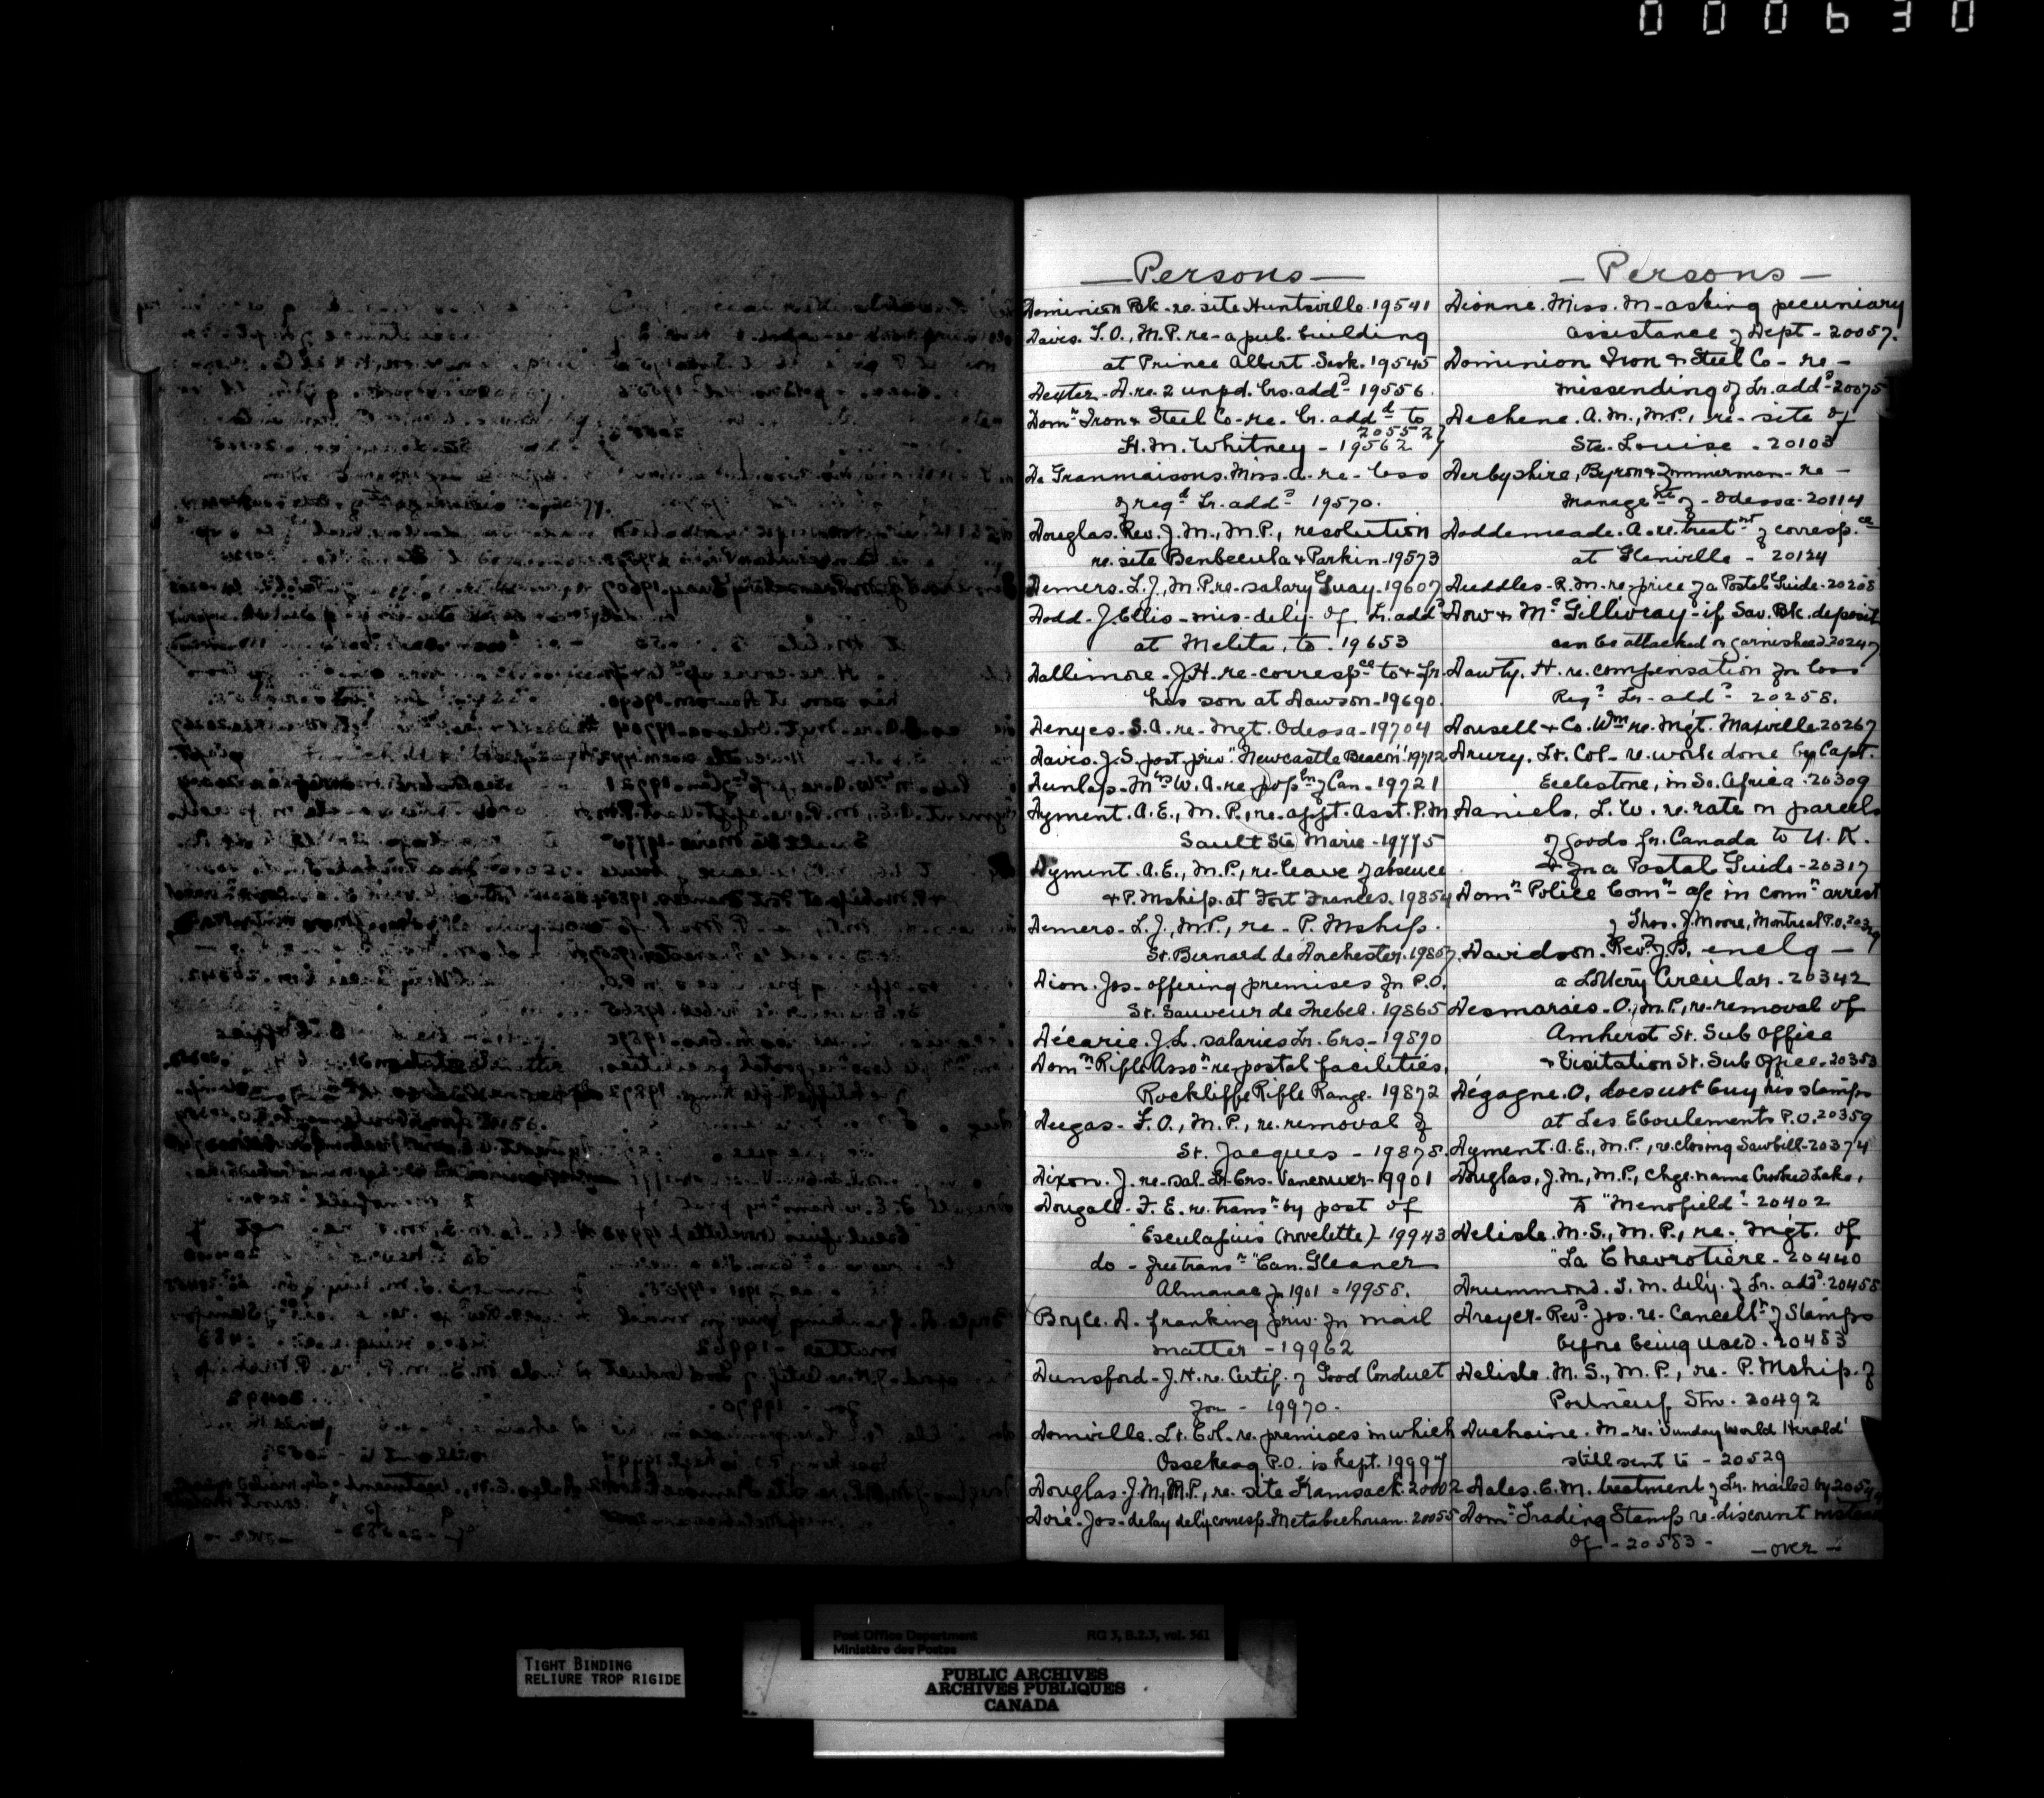 000630
Persons
Dominion Bk. re. site Huntsville. 19541
Davis. T.O., M.P. re- a pub. building
at Prince Albert. Sask. 19545
Dexter. A. re. 2 unpd. Lrs. addd. 19556.
Domn. Iron & Steel Co- re- Lr. addd to
20552
H.M. Whitney - 19562
De Granmaisons. Miss. A. re- loss
of regd Lr. addd. 19570.
Douglas. Rev. J.M., M.P., resolution
re. site Benbecula & Parkin-19573
Demers. L.J., M.P. re- salary Guay. 19607
Dodd- J. Ellis- mis-dely. of Lr. addd
at Melita, to. 19653
Dallimore. J.H. re- correspce to & fr.
his son at Dawson-19690.
Denyes. S.A. re- Mgt. Odessa-19704
Davis. J.S. post. priv. "Newcastle Beacon" 19712
Dunlap- Mrs W.A. re popn of Can- 19721
Dyment. A.E., M.P., re. appt. Asst. P.M
Sault Ste Marie-19775
Dyment. A.E., M.P., re- leave of absence
& P. Mship. at Fort Frances. 19854
Demers- L.J., M.P., re- P. Mship.
St. Bernard de Dorchester. 19857
Dion. Jos- offering premises for P.O.
St. Sauveur de Quebec. 19865
Décarie. J.L. salaries Lr. Crs- 19870
Domn Rifle Asson re- postal facilities,
Rockliffe Rifle Range. 19872
Dugas- F.O., M.P., re. removal of
St. Jacques - 19878.
Dixon. J. re- sal. Lr. Crs- Vancouver- 19901
Dougall- F.E. re. transn by post of
"Esculapius" (novelette) - 19943
do - free transn "Can. Gleaner
Almanac for 1901 - 19958.
Bryce. A. franking priv. for mail
matter - 19962
Dunsford- J.H. re. Certif. of Good Conduct
for - 19970-
Domville. Lt. Col. re. premises in which
Ossekeag P.O. is kept. 19997
Douglas. J.M., M.P., re. site Kamsack. 20002
Doré- Jos- delay dely corresp. Metabechouan. 20055
Persons
Dionne. Miss. M- asking pecuniary
assistance of Dept- 20057.
Dominion Iron & Steel Co- re-
missending of Lr. addd-20075
Dechene. A.M., M.P., re- site of
Ste. Louise. 20103
Derbyshire, Byron & Zimmerman- re-
managet of - Odessa-20114
Doddemeade. A. re. treatmt of correspce
at Glenville - 20124
Duddles- R.M. re- price of a Postal Guide-20208
Dow & McGillivray- if Sav. Bk. deposit
can be attached or garnisheed. 20247
Dawty. H. re. compensation for loss
Regd Lr- addd 20258.
Dousell & Co. Wm re. Mgt. Maxville 20267
Drury. Lt. Col- re. work done by Capt.
Ecclestone, in So. Africa. 20309
Daniels, L.W. re. rate on parcels
of goods fr. Canada to U.K.
& for a Postal Guide- 20317
Domn Police Comn- a/c in connn arrest
of Thos. J. Moore, Montreal P.O. 20329
Davidson. Revd J.B. enclg -
a Lottery Circular. 20342
Desmarais. O., M.P., re-removal of
Amherst St. Sub Office
& Visitation St. Sub Office. 20353
Dégagne. O, does not buy his stamps
at Les Eboulements P.O. 20359
Dyment. A.E., M.P., re. closing Sawbill- 20374
Douglas, J.M., M.P., chge. name Crooked Lake,
to "Menofield"- 20402
Delisle. M.S., M.P., re. Mgt. of
"La Chevrotière- 20440
Drummond. T.M. dely. of Lr. addd. 20458
Dreyer- Revd Jos. re- Cancelln of Stamps
before being used. 20483
Delisle. M.S., M.P., re- P. Mship. of
Portneuf Stn. 20492
Duchaine. M- re. "Sunday World Herald"
still sent to - 20529
Dales. E.M. treatment of Lr. mailed by
Domn Trading Stamp re- discount
of - 20583 -
- over -
TIGHT BINDING
RELIURE TROP RIGIDE
Post Office Department
Ministère des Postes
RG 3, B.2.3, vol. 561
PUBLIC ARCHIVES
ARCHIVES PUBLIQUES
CANADA